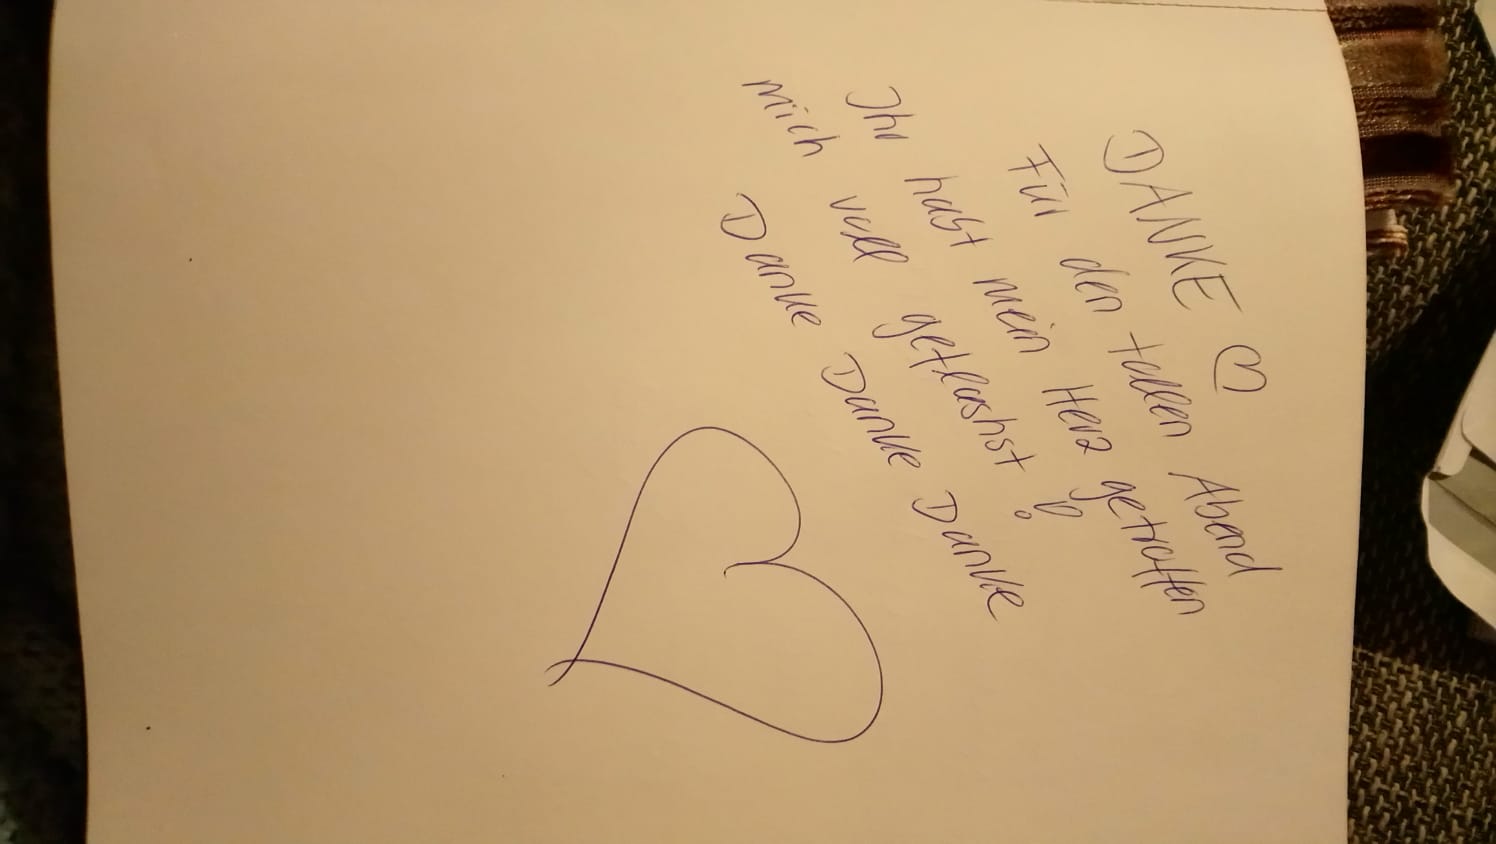 DANKE ♡
Für den tollen Abend
Ihr habt mein Herz getroffen
mich voll geflashst!
Danke Danke Danke